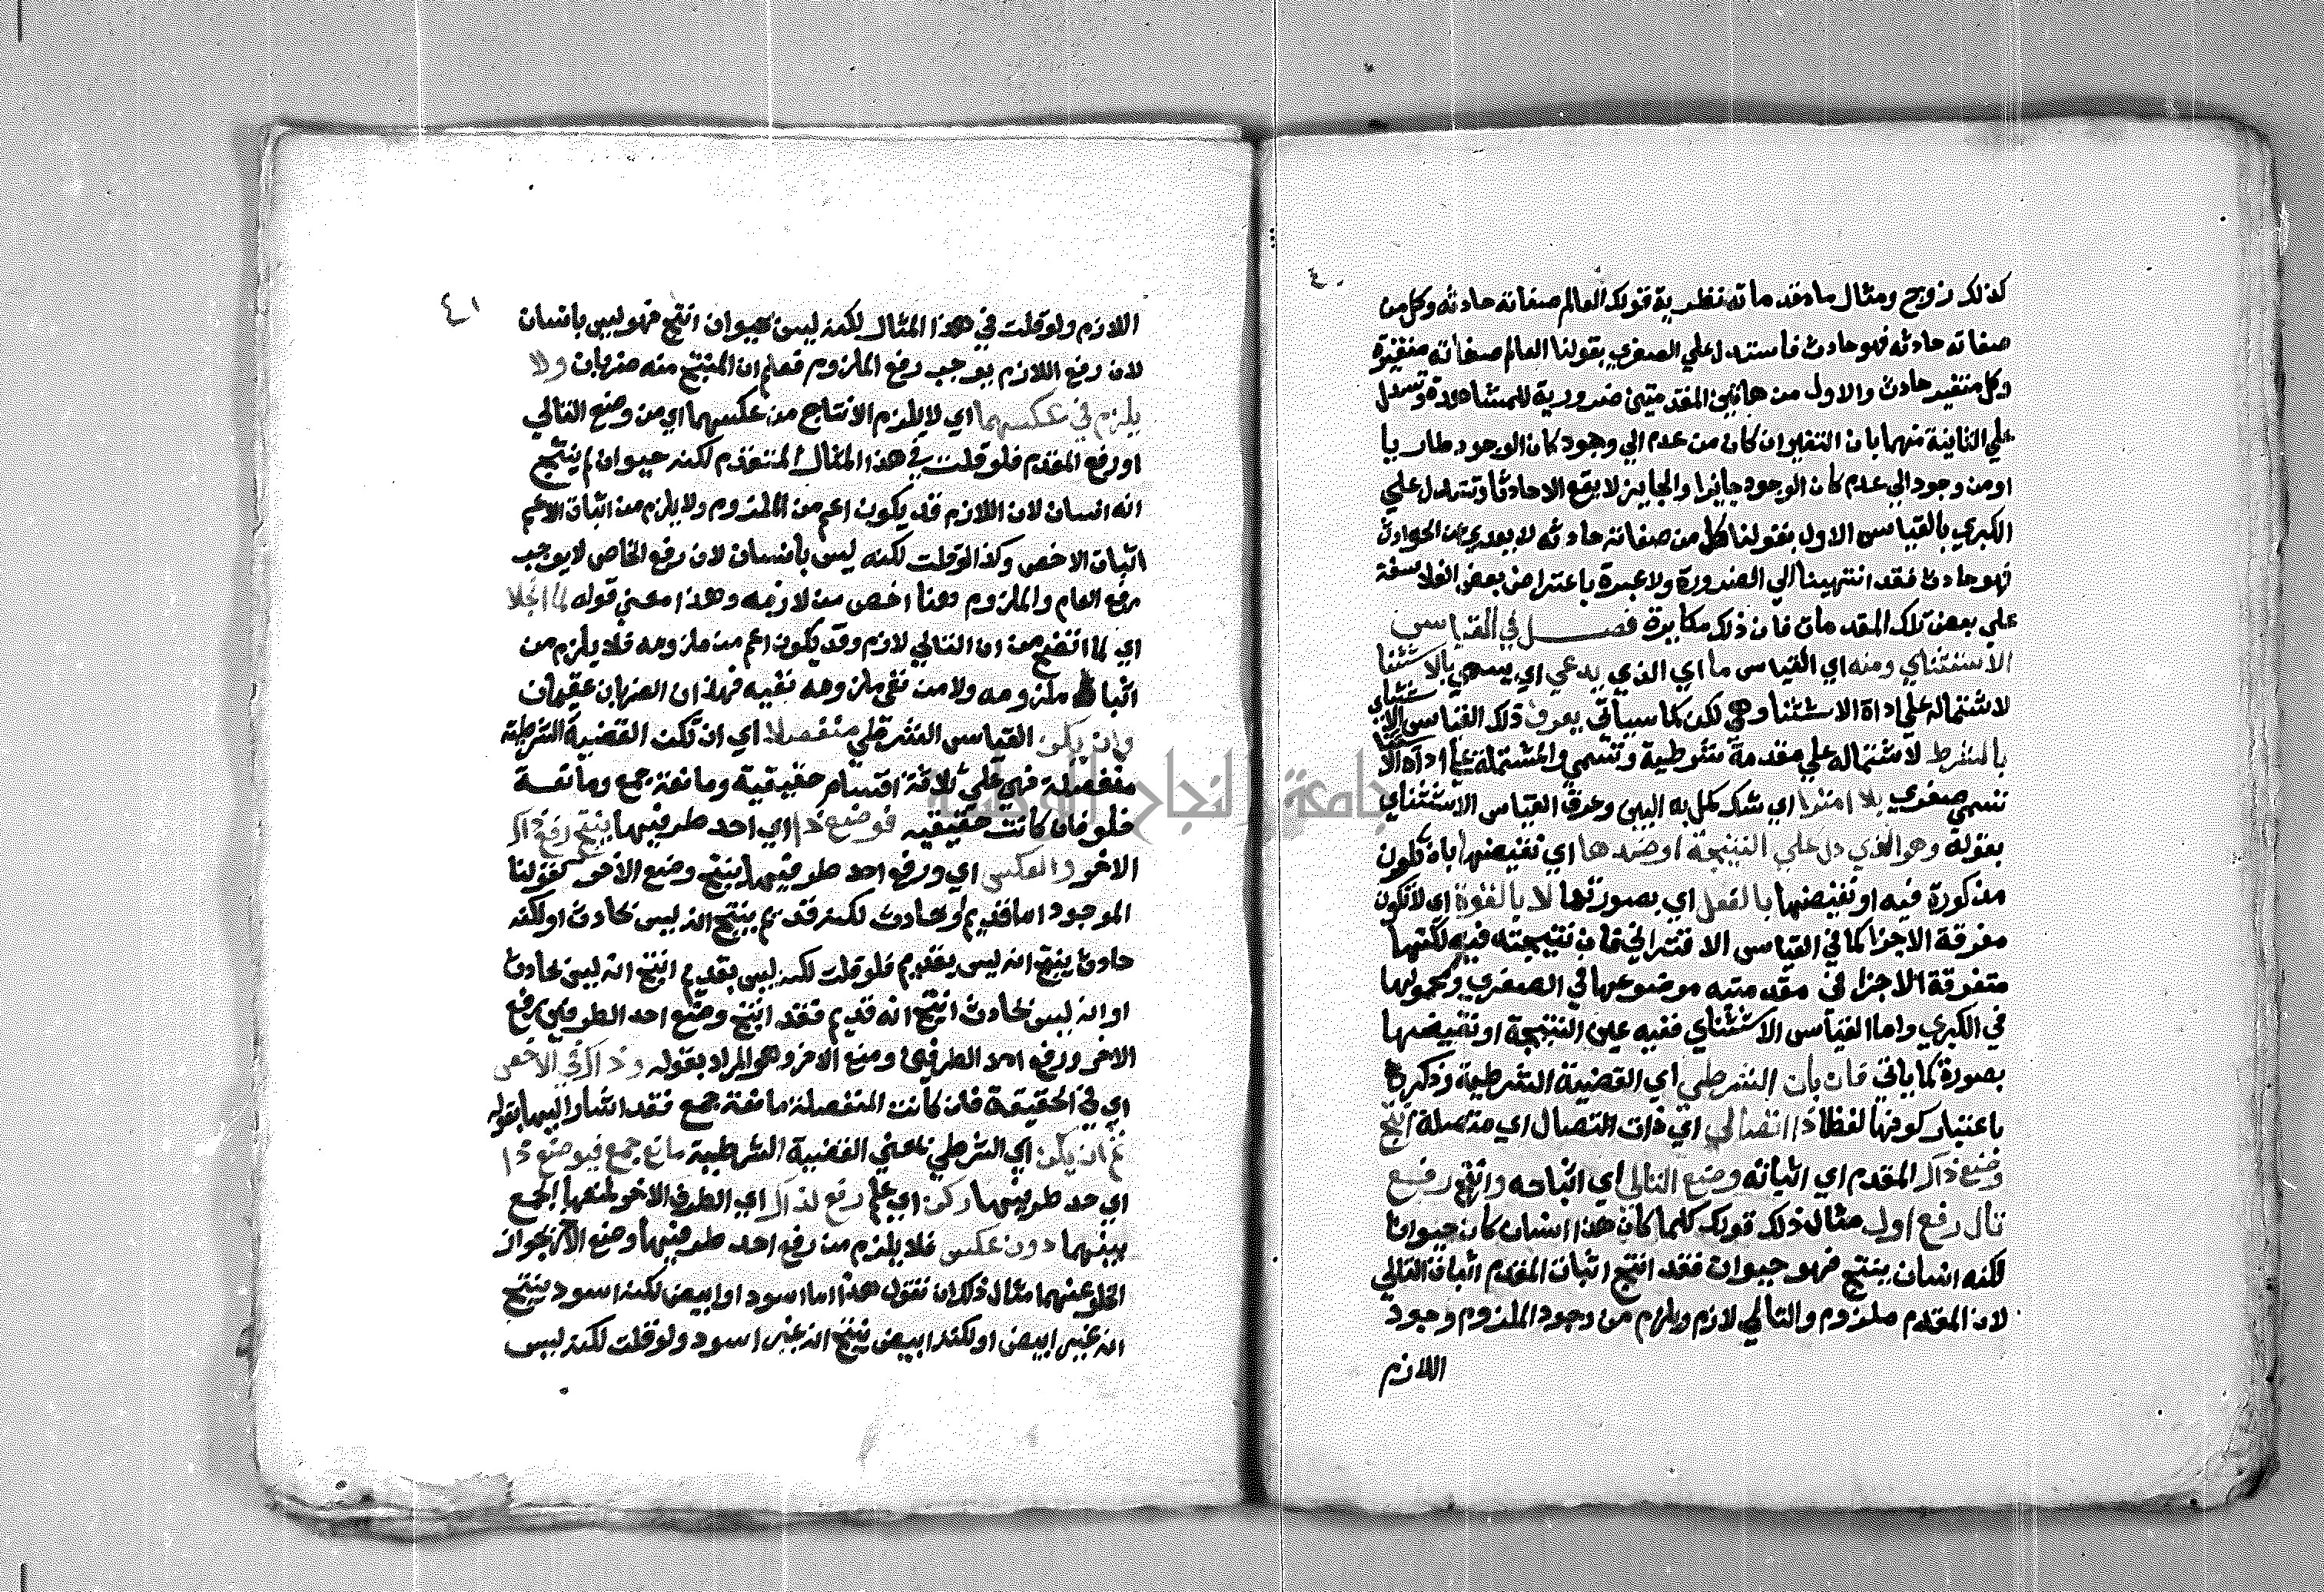 ٤٠
كذلك زوج ومثال ما مقدماته نظرية قولك العالم صفاته حادثه وكل من
صفاته حادثه فهو حادث فاستدل علي الصغري بقولنا العالم صفاته متغيرة
وكل متغير حادث والاول من هاتين المقدمتين ضرورية للمشاهدة وتستدل
علي الثانية منهما بان التغير ان كان من عدم الي وجود كان الوجود طاريا
او من وجود الي عدم كان الوجود جايزا والجايز لا يقع الا حادثا وتستدل علي
الكبري بالقياس الاول بقولنا كل من صفاته حادثه لا يعري عن الحوادث
فهو حادث فقد انتهينا الي الضرورة ولا عبرة باعتراض بعض الفلاسفة
علي بعض تلك المقدمات فان ذلك مكابرة فصل في القياس
الاستثناي ومنه اي القياس ما اي الذي يدعي اي يسمي بالاستثنا
لاشتماله علي اداة الاستثنا وهي لكن كما سياتي يعرف ذلك القياس الاستثناي
بالشرط لاشتماله علي مقدمة شرطية وتسمي والمشتملة علي اداة الاستثنا
تسمي صغري بلا امترا اي شك كمل به البيت وعرف القياس الاستثناي
بقوله وهو الذي دل علي النتيجة او ضدها اي نقيضها بان تكون
مذكورة فيه او نقيضها بالفعل اي بصورتها لا بالقوة اي لا تكون
مفرقة الاجزا كما في القياس الاقتراني فان نتيجته فيه لكنها
متفرقة الاجزا في مقدمتيه موضوعها في الصغري ومحمولها
في الكبري واما القياس الاستثناي ففيه عين النتيجة او نقيضها
بصورة كما ياتي فان بان الشرطي اي القضية الشرطية وذكره
باعتبار كونها لفظا ذا اتصال اي ذات اتصال اي متصلة انتج
وضع ذاك المقدم اي اثباته وضع التالي اي اثباته وانتج رفع
تال رفع اول مثال ذلك قولك كلما كان هذا انسان كان حيوانا
لكنه انسان ينتج فهو حيوان فقد انتج اثبات المقدم اثبات التالي
لان المقدم ملزوم والتالي لازم ويلزم من وجود الملزوم وجود
اللازم
٤١
اللازم ولو قلت في هذا المثال لكنه ليس بحيوان انتج فهو ليس بانسان
لان رفع اللازم يوجب رفع الملزوم فعلم ان المنتج منه ضربان ولا
يلزم في عكسهما اي لا يلزم الانتاج من عكسهما اي من وضع التالي
او رفع المقدم فلو قلت في هذا المثال المتقدم لكنه حيوان لم ينتج
انه انسان لان اللازم قد يكون اعم من الملزوم ولا يلزم من اثبات الاعم
اثبات الاخص وكذا لو قلت لكنه ليس بانسان لان رفع الخاص لا يوجب
رفع العام والملزوم هنا اخص من لازمه وهذا معني قوله لما انجلا
اي لما اتضح من ان التالي لازم وقد يكون اعم من ملزومه فلا يلزم من
اثباته ملزومه ولا من نفي ملزومه نفيه فهذان الضربان عقيمان
وان يكن القياس الشرطي منفصلا اي ان تكن القضية الشرطية
منفصلة فهي علي ثلاثة اقسام حقيقية ومانعة جمع ومانعة
خلو فان كانت حقيقيه فوضع ذا اي احد طرفيها ينتج رفع ذاك
الاخر والعكس اي ورفع احد طرفيها ينتج وضع الاخر كقولنا
الموجود اما قديم او حادث لكنه قديم ينتج انه ليس بحادث او لكنه
حادث ينتج انه ليس بقديم فلو قلت لكنه ليس بقديم انتج انه ليس بحادث
او انه ليس بحادث انتج انه قديم فقد انتج وضع احد الطرفين رفع
الاخر ورفع احد الطرفين وضع الاخر وهو المراد بقوله وذاك في الاخص
اي في الحقيقة فان كانت المنفصلة مانعة جمع فقد اشار اليها بقوله
ثم ان يكن اي الشرطي بمعني القضية الشرطية مانع جمع فبوضع ذا
اي احد طرفيها زكن اي علم رفع لذاك اي الطرف الاخر لمنعها الجمع
بينهما دون عكس فلا يلزم من رفع احد طرفيها وضع الاخر لجواز
الخلو عنهما مثال ذلك ان تقول هذا اما اسود او ابيض لكنه اسود ينتج
انه غير ابيض او لكنه ابيض ينتج انه غير اسود ولو قلت لكنه ليس